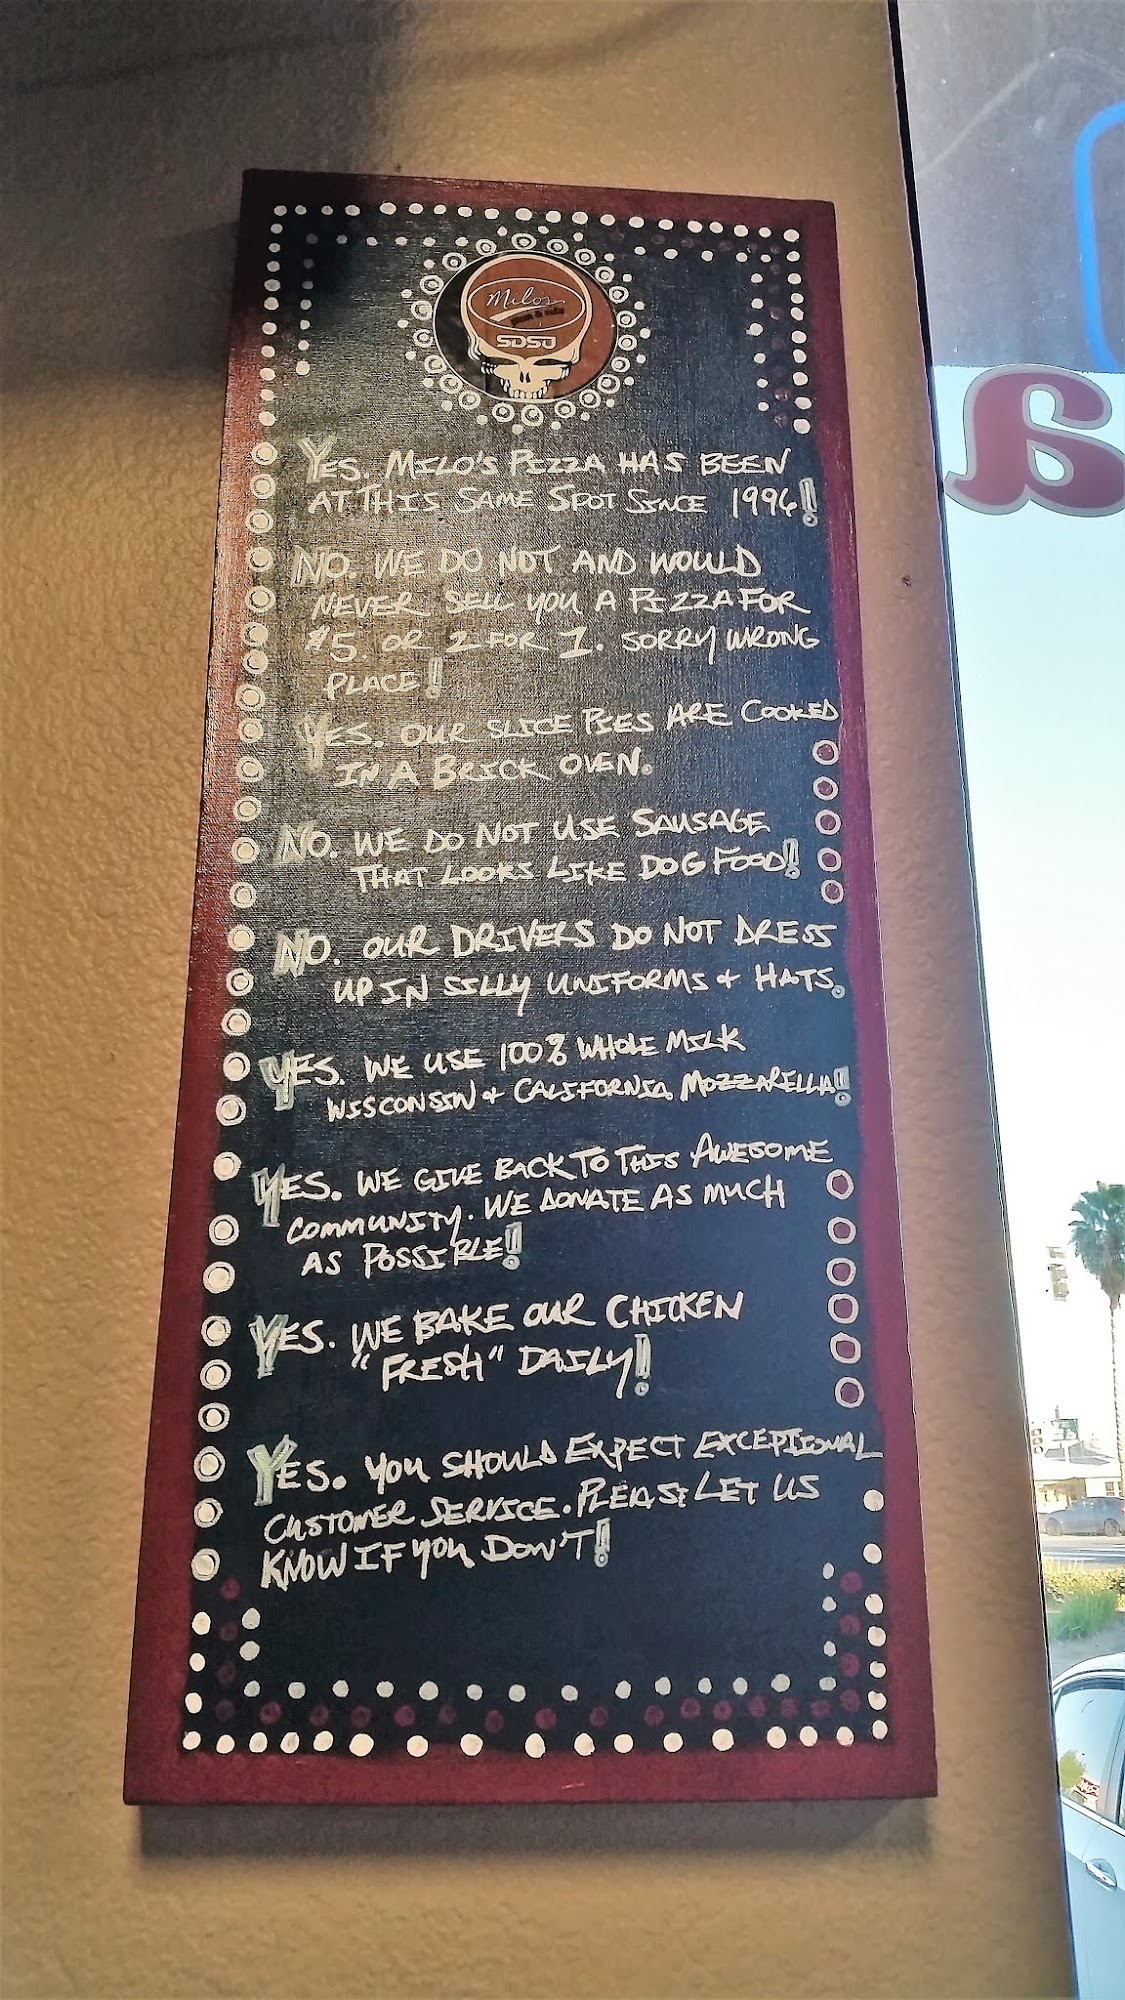 Milo's
SDSU
YES. MILO'S PIZZA HAS BEEN
AT THIS SAME SPOT SINCE 1996!
NO. WE DO NOT AND WOULD
NEVER SELL YOU A PIZZA FOR
$5 OR 2 FOR 1. SORRY WRONG
PLACE!
YES. OUR SLICE PIES ARE COOKED
IN A BRICK OVEN.
NO. WE DO NOT USE SAUSAGE
THAT LOOKS LIKE DOG FOOD!
NO. OUR DRIVERS DO NOT DRESS
UP IN SILLY UNIFORMS + HATS.
YES. WE USE 100% WHOLE MILK
WISCONSIN + CALIFORNIA MOZZARELLA!
YES. WE GIVE BACK TO THIS AWESOME
COMMUNITY. WE DONATE AS MUCH
AS POSSIBLE!
YES. WE BAKE OUR CHICKEN
"FRESH" DAILY!
YES. YOU SHOULD EXPECT EXCEPTIONAL
CUSTOMER SERVICE. PLEASE LET US
KNOW IF YOU DON'T!
a